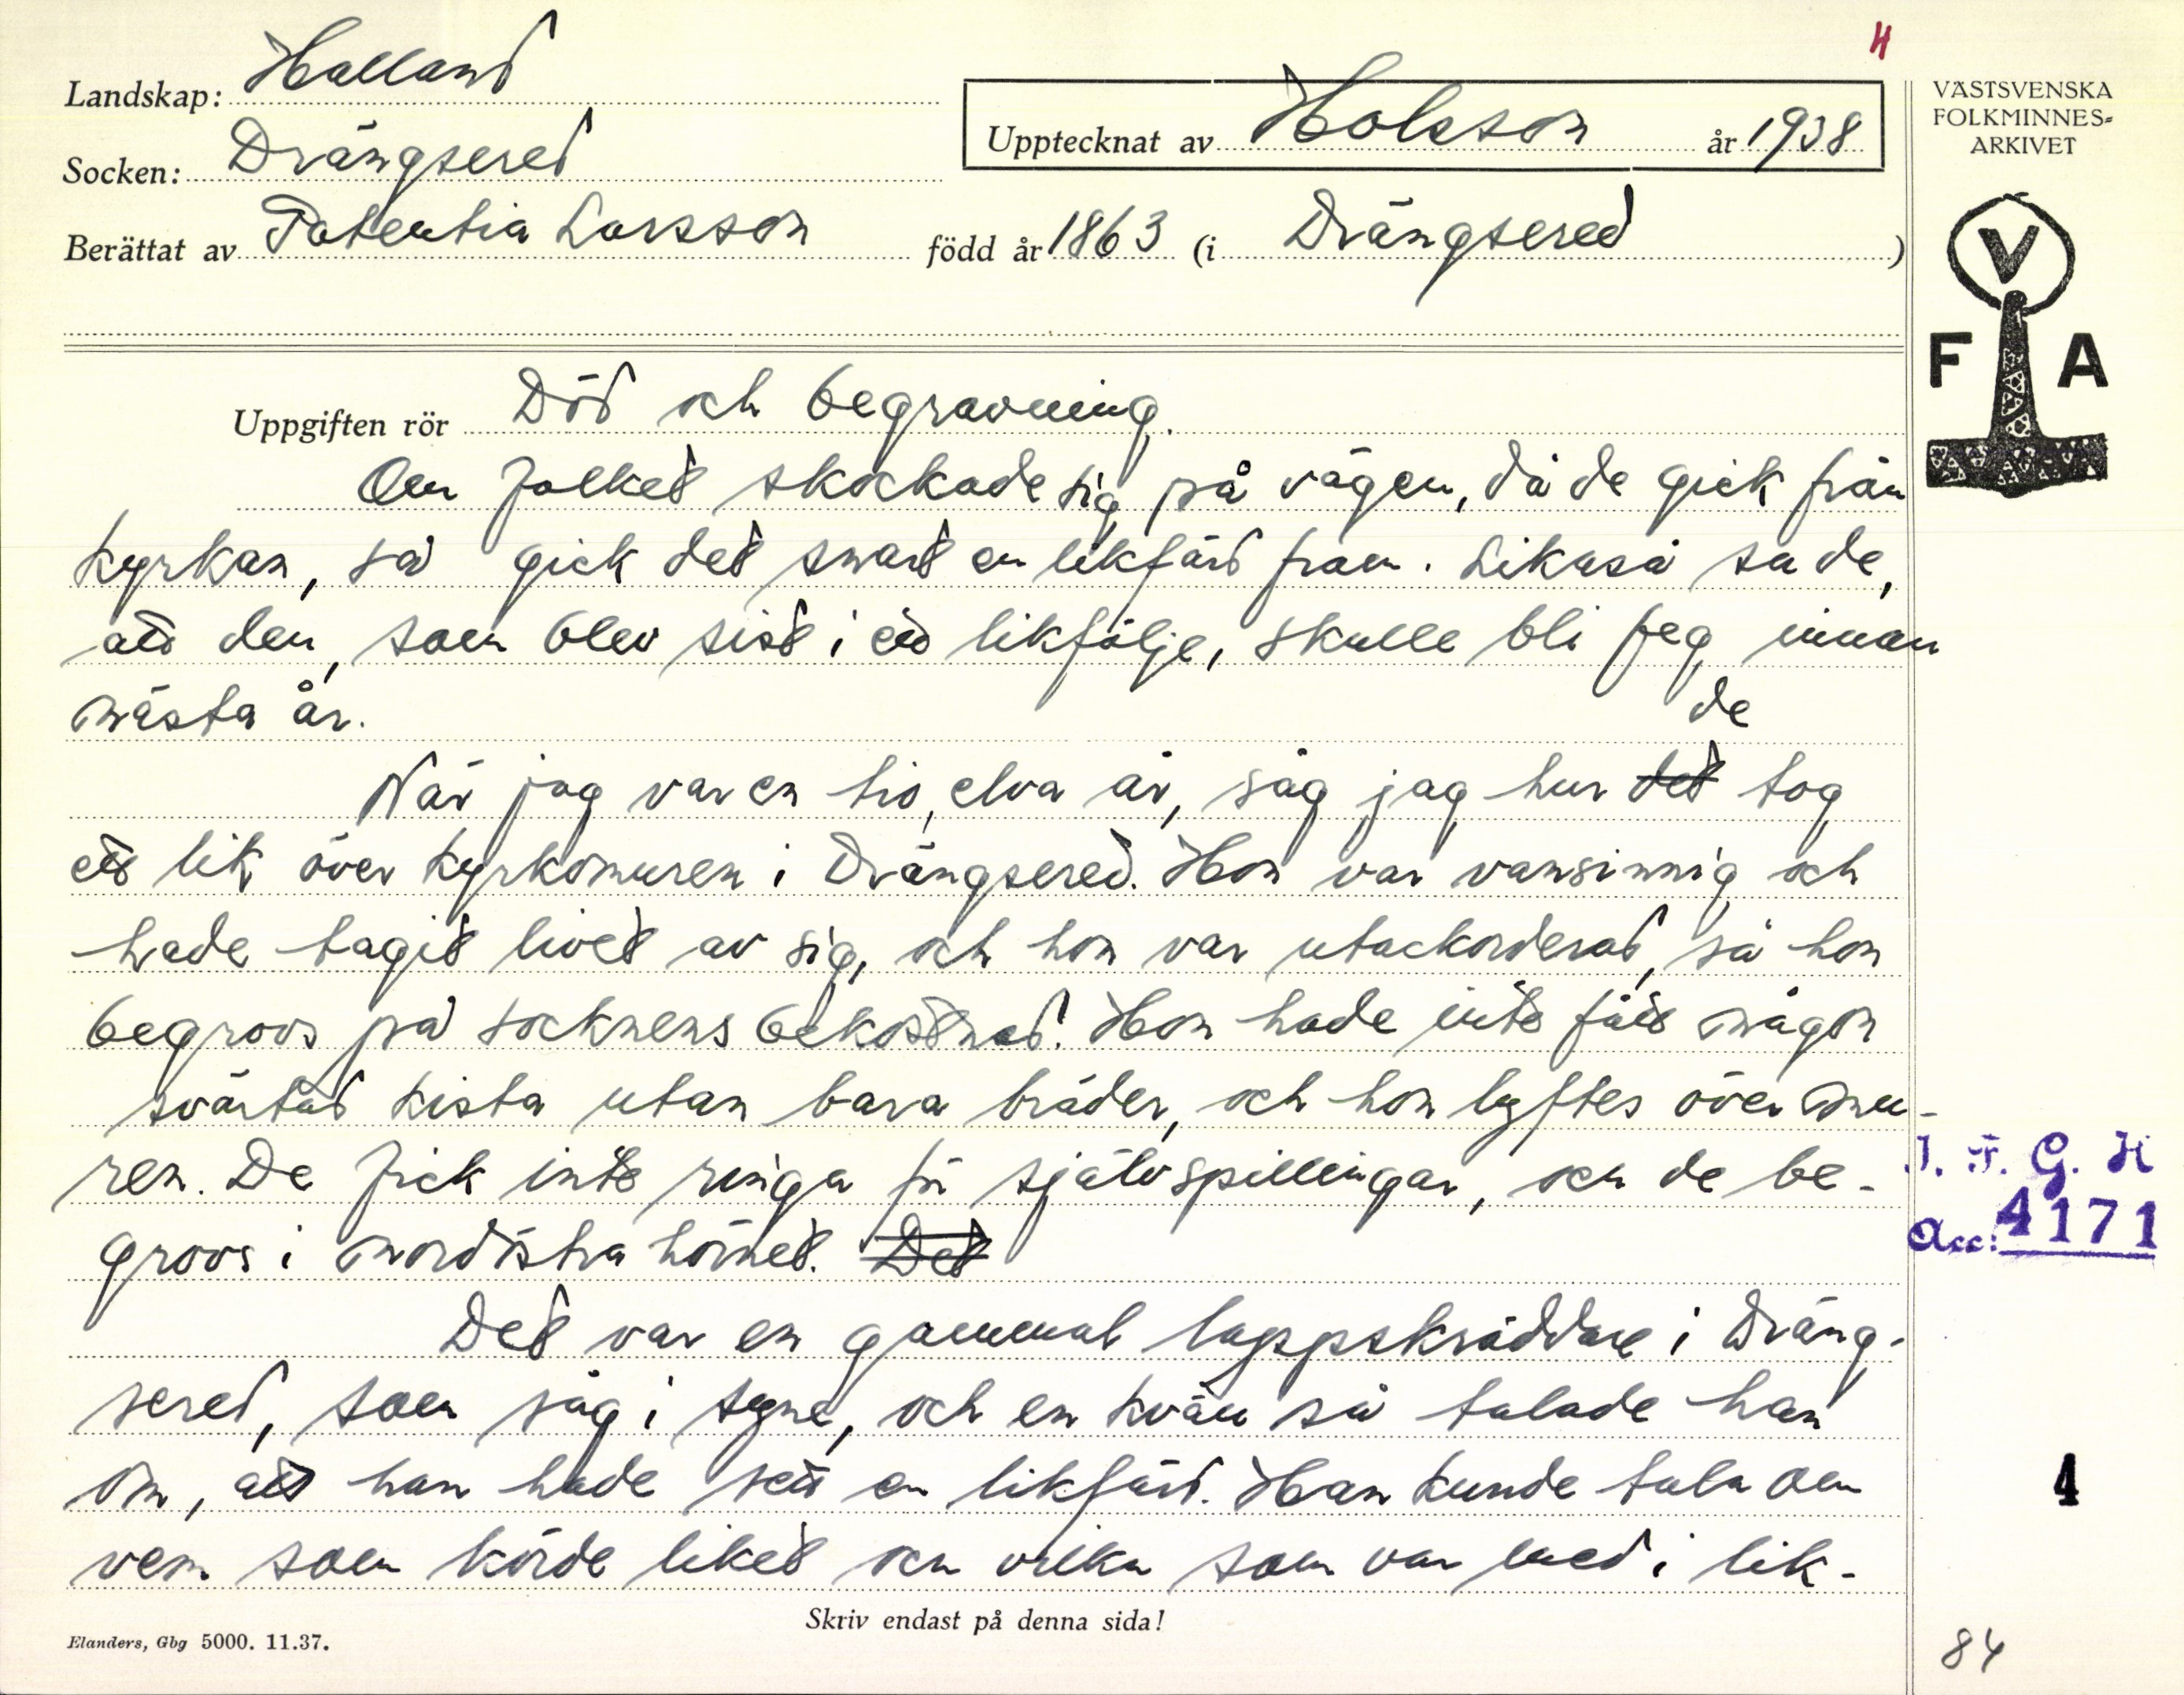 H
Landskap: Halland
Socken: Drängsered
Upptecknat av Holsson år 1938
Berättat av Potentia Larsson född år 1863 (i Drängsered )
VÄSTSVENSKA
FOLKMINNES-
ARKIVET
V
F A
Uppgiften rör Död och begravning.
Om folket skockade sig på vägen, då de gick från
kyrkan, så gick det snart en likfärd fram. Likaså sa de,
att den, som blev sist i ett likfölje, skulle bli feg innan
nästa år.
de
När jag var en tio, elva år, såg jag hur det tog
ett lik över kyrkomuren i Drängsered. Hon var vansinnig och
hade tagit livet av sig, och hon var utackorderad, så hon
begrovs på socknens bekostnad. Hon hade inte fått någon
svärtad kista utan bara bräder, och hon lyftes över mu-
ren. De fick inte ringa för självspillingar, och de be-
grovs i nordöstra hörnet. Det
Det var en gammal lappskräddare i Dräng-
sered, som såg i syne, och en kväll så talade han
om, att han hade sett en likfärd. Han kunde tala om
vem som körde liket och vilka som var med i lik-
I. F. G. H
Acc: 4171
4
Skriv endast på denna sida!
Elanders, Gbg 5000. 11.37.
84